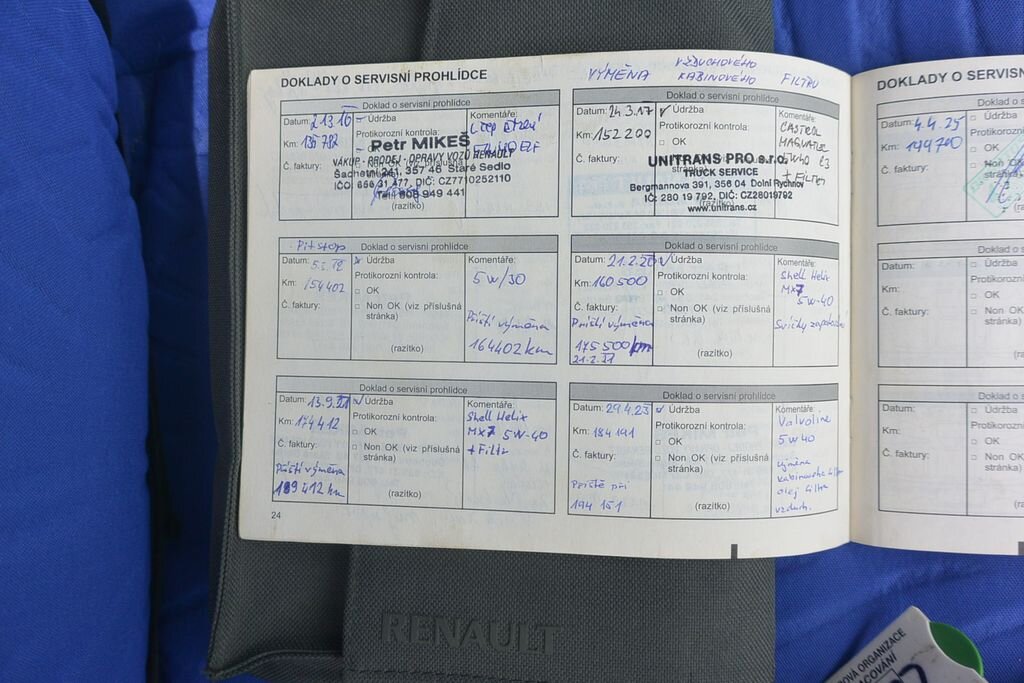 DOKLADY O SERVISNÍ PROHLÍDCE
VÝMĚNA VZDUCHOVÉHO
KABINOVÉHO FILTRU
Doklad o servisní prohlídce
Datum: 21 3 16
Údržba
Km: 135 792
Protikorozní kontrola:
Č. faktury:
Komentáře:
Petr MIKEŠ
VÁKUP - PRODEJ - OPRAVY VOZŮ RENAULT
241, 357 46 Staré Sedlo
(razítko)
Doklad o servisní prohlídce
Datum: 24.3.17
Údržba
Km: 152 200
Protikorozní kontrola:
OK
Č. faktury:
Komentáře:
CASTROL
MAGNATEC
5W40 C3
+ FILTR
UNITRANS PRO s.r.o.
TRUCK SERVICE
Bergmannova 391, 356 04 Dolní Rychnov
IČ: 280 19 792, DIČ: CZ28019792
www.unitrans.cz
Pitstop
Doklad o servisní prohlídce
Datum:
Údržba
Km: 154402
Protikorozní kontrola:
OK
Č. faktury:
Non OK (viz příslušná
stránka)
(razítko)
Komentáře:
5w/30
Příští výměna
164402 km
Doklad o servisní prohlídce
Datum: 21.2.20
Údržba
Km: 160 500
Protikorozní kontrola:
OK
Č. faktury:
Non OK (viz příslušná
stránka)
Příští výměna
175 500 km
21.2.21
(razítko)
Komentáře:
Shell Helix
MX7
5w-40
Svíčky zapalování
Doklad o servisní prohlídce
Datum: 13.9.21
Údržba
Km: 174 412
Protikorozní kontrola:
OK
Č. faktury:
Non OK (viz příslušná
stránka)
Příští výměna
189 412 km
(razítko)
Komentáře:
Shell Helix
MX7 5W-40
+ Filtr
Doklad o servisní prohlídce
Datum: 29.4.23
Údržba
Km: 184 191
Protikorozní kontrola:
OK
Č. faktury:
Non OK (viz příslušná
stránka)
Příště při
194 151
(razítko)
Komentáře:
Valvoline
5w40
výměna
olej filtr
vzduch.
24
DOKLADY O SERVISN
Datum: 4.4.25
Údržba
Km: 199700
Protikorozní
OK
Č. faktury:
Datum:
Údržba
Km:
Protikorozní
OK
Č. faktury:
Non OK
stránka)
Datum:
Údržba
Km:
Protikorozní
OK
Č. faktury:
Non OK
stránka)
RENAULT
ORGANIZACE